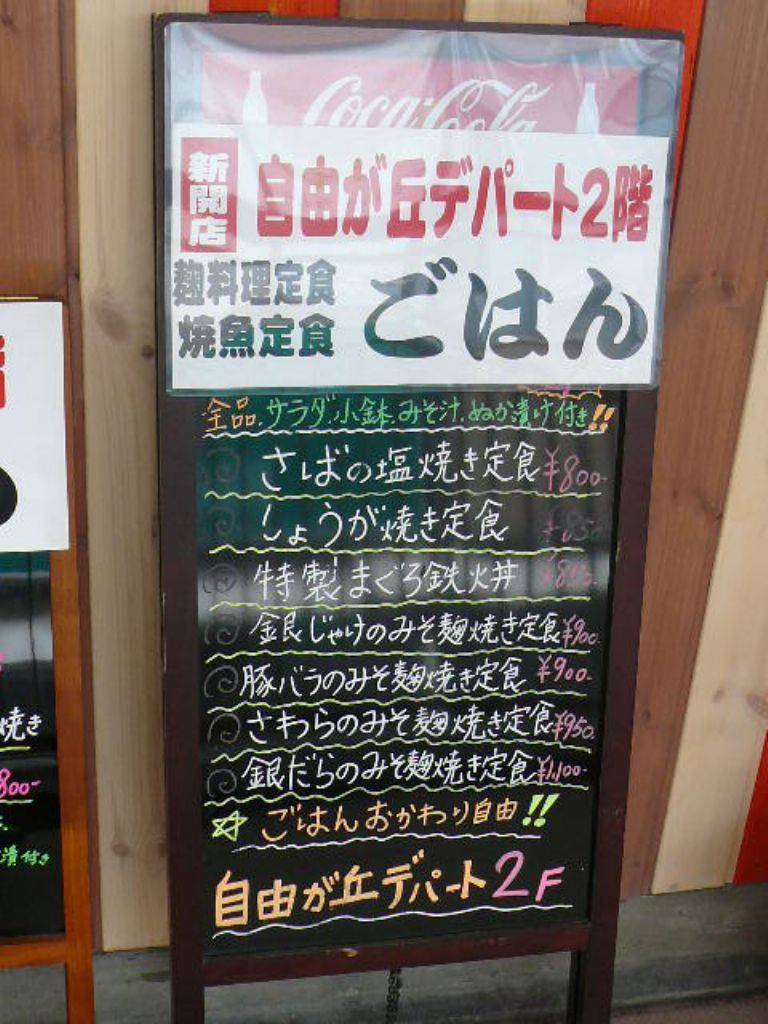 Coca-Cola
新開店
自由が丘デパート2階
麹料理定食
焼魚定食
ごはん
全品.サラダ.小鉢.みそ汁.ぬか漬け付き!!
さばの塩焼き定食 ¥800-
しょうが焼き定食 ¥850
特製まぐろ鉄火丼
銀じゃけのみそ麹焼き定食 ¥900-
豚バラのみそ麹焼き定食 ¥900-
さわらのみそ麹焼き定食 ¥950-
銀だらのみそ麹焼き定食 ¥1,100-
☆ごはんおかわり自由!!
自由が丘デパート2F
焼き
800-
漬付き